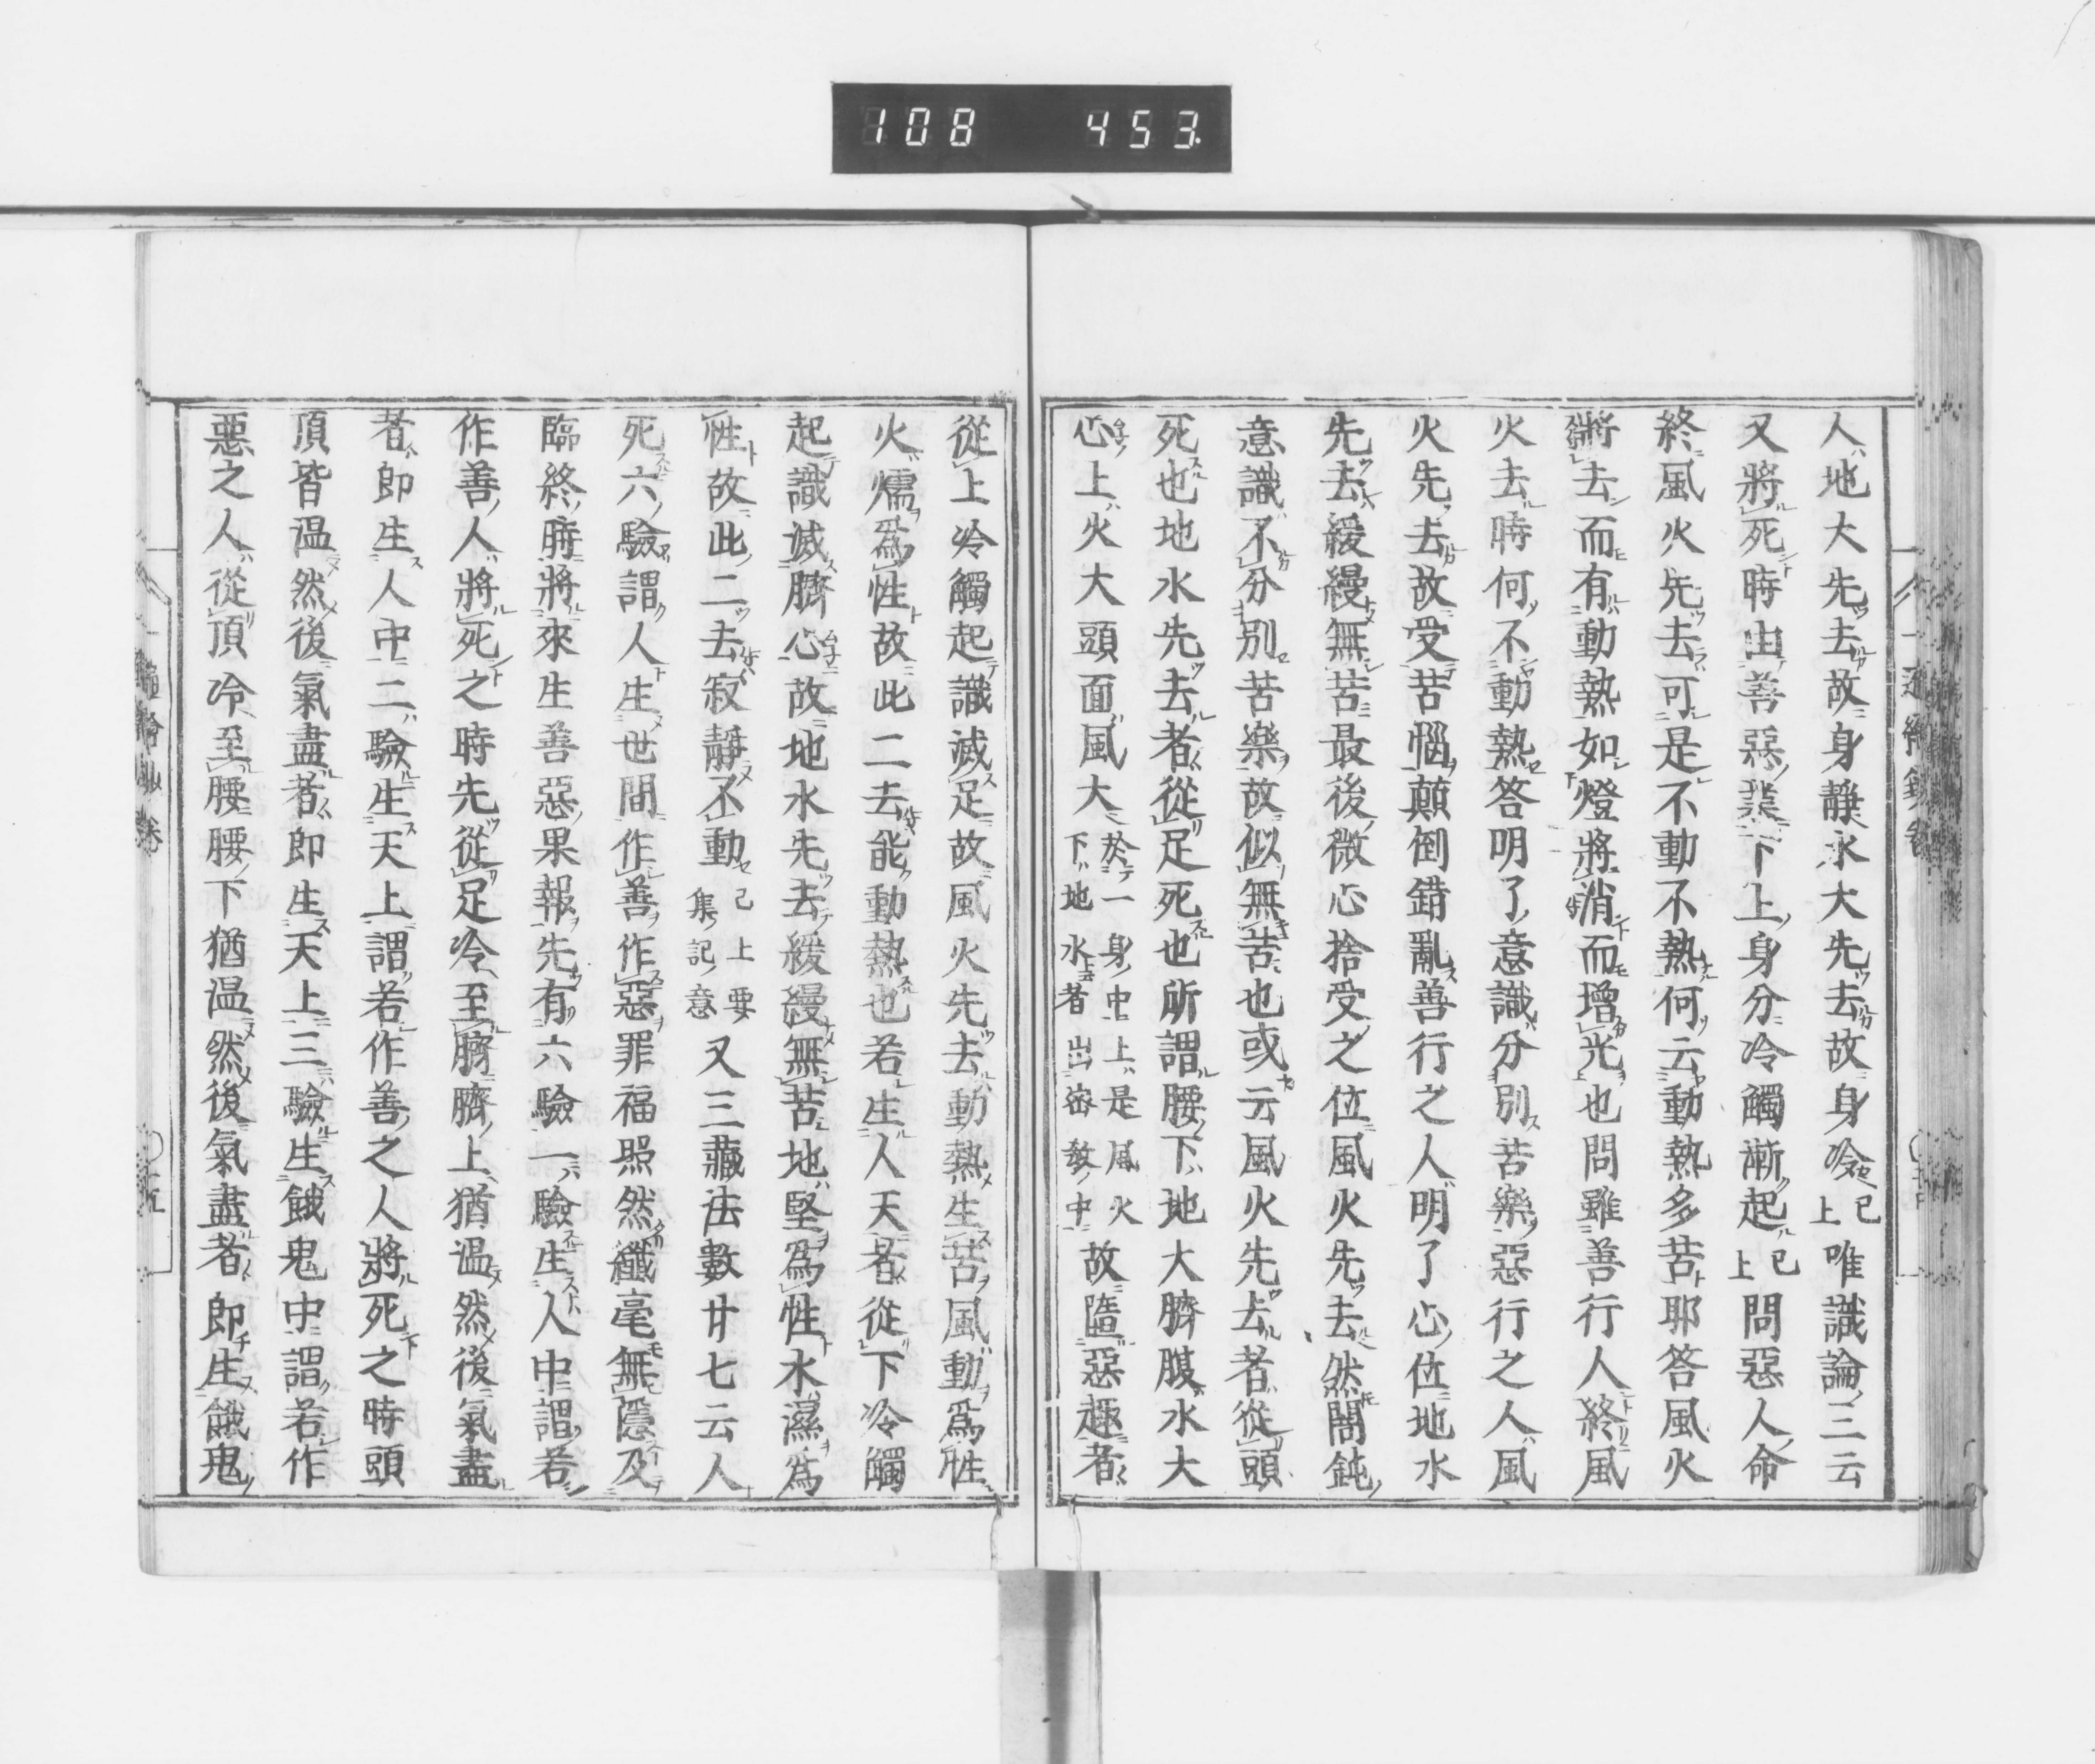 108 453
人地大先去故身靜水大先去故身冷已上唯識論三云
又將死時由善惡業下上身分冷觸漸起已上問惡人命
終風火先去可是不動不熱何云動熱多苦耶答風火
將去而有動熱如燈將消而增光也問雖善行人終風
火去時何不動熱答明了意識分別苦樂惡行之人風
火先去故受苦惱顛倒錯亂善行之人明了心位地水
先去緩縵無苦最後微心捨受之位風火先去然闇鈍
意識不分別苦樂故似無苦也或云風火先去者從頭
死也地水先去者從足死也所謂腰下地大臍腹水大
心上火大頭面風大於一身中上是風火下地水者出密教中故墮惡趣者
從上冷觸起識滅足故風火先去動熱生苦風動爲性
火燸爲性故此二去能動熱也若生人天者從下冷觸
起識滅臍心故地水先去緩縵無苦地堅爲性水濕爲
性故此二去寂靜不動已上要集記意又三藏法數廿七云人
死六驗謂人生世間作善作惡罪福照然纖毫無隱及
臨終時將來生善惡果報先有六驗一驗生人中謂若
作善人將死之時先從足冷至臍臍上猶温然後氣盡
者即生人中二驗生天上謂若作善之人將死之時頭
頂皆温然後氣盡者即生天上三驗生餓鬼中謂若作
惡之人從頂冷至腰腰下猶温然後氣盡者即生餓鬼